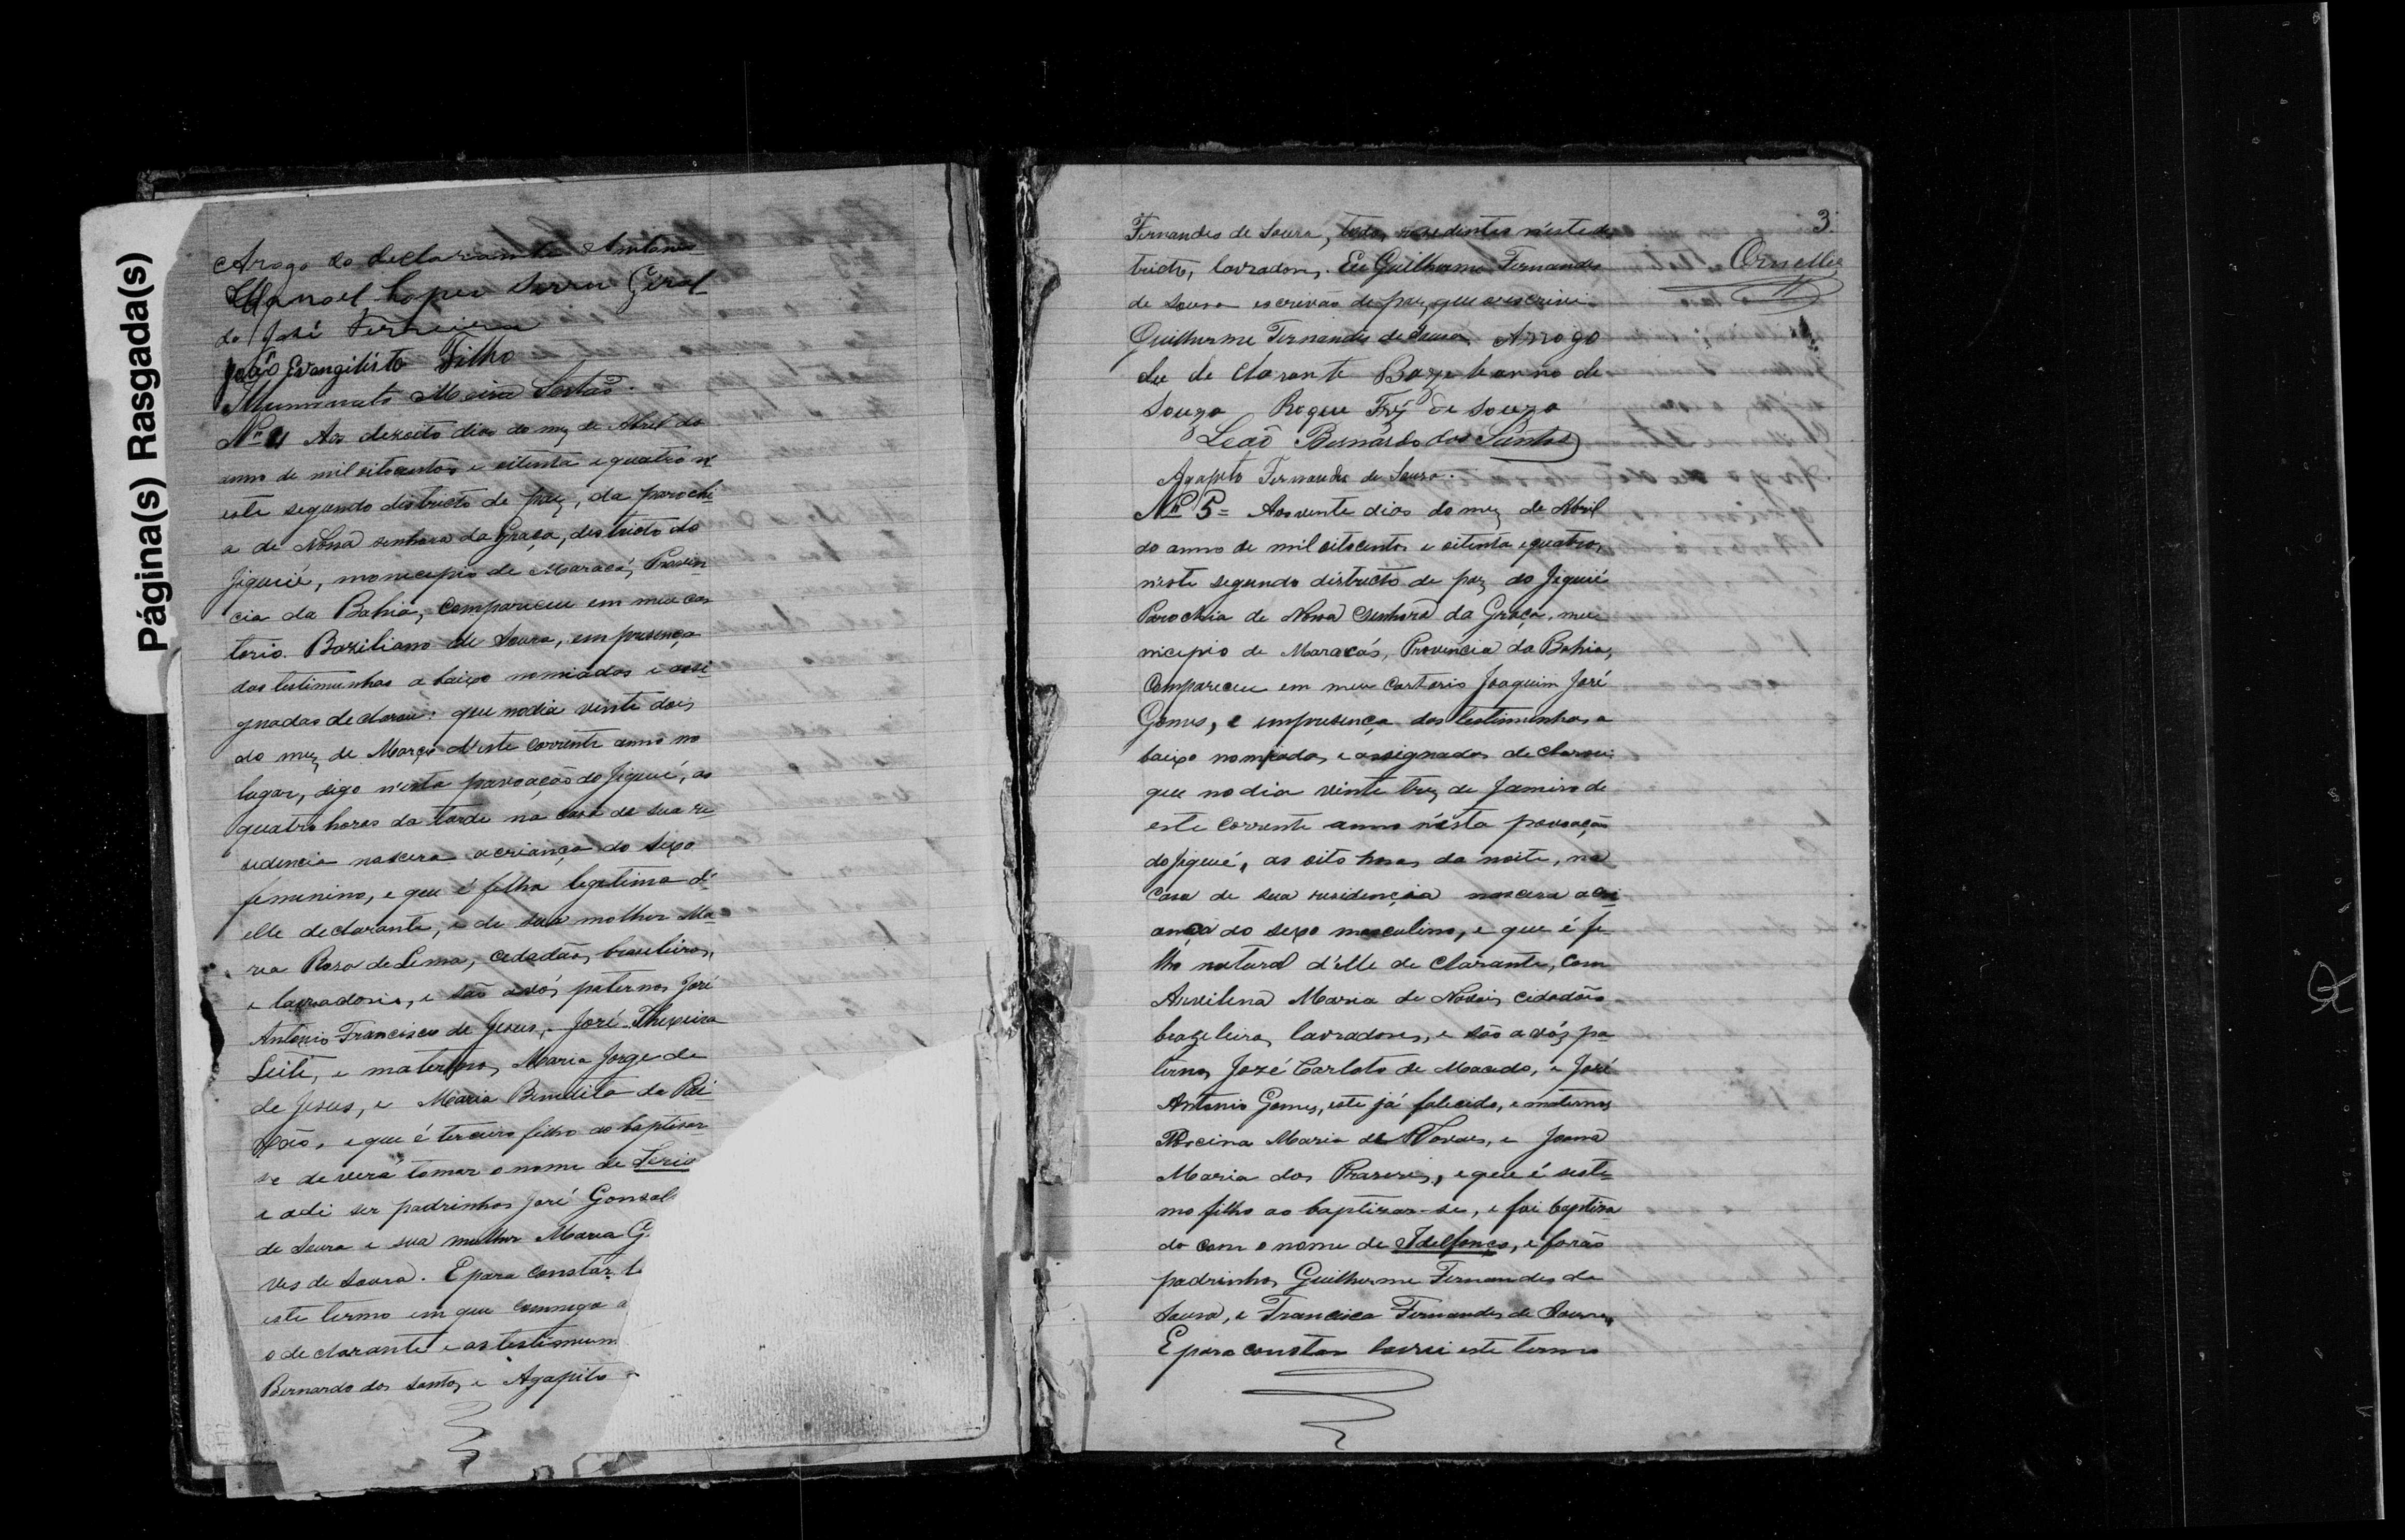 Página(s) Rasgada(s)
Arogo do declarante Antonio
Manoel Lopes Serra Geral
do José Ferreira
João Evangilista Filho
Meira Sertão.
Nº 4 Aos dezoito dias do mez de Abril do
anno de mil oitocentos e oitenta e quatro n'
este segundo districto de paz, da parochi
a de Nossa senhora da Graça, destricto do
Jiquié, monicepio de Maracás, Provin
cia da Bahia, compareceu em meu car
torio Baziliano de Souza, em presença
das testimunhas a baixo nomiadas e assi
gnadas declarou: que no dia vinte dois
do mez de Março d'este corrente anno no
lugar, digo n'esta pavoação do Jiquié, as
quatro horas da tarde na casa de sua re
sidencia nascera a criança do sexo
femenino, e que é filha legitima d'
elle declarante, e de sua molher Ma
ria Rosa de Lima, cidadãos brasileiros,
e lavradores, e são avós paternos José
Antonio Francisco de Jesus, José Thexeira
Leite, e maternos Maria Jorge de
de Jesus, e Maria Bendita da Pai
xão, e que é terceiro filho ao baptisar
se deverá tomar o nome de
e adi ser padrinhos José Gonsal
de Souza e sua mulher Maria G.
ves de Souza. E para constar
este termo em que commigo a
o declarante e as testimum
Bernardo dos Santos e Agapito
3
Ornellas
Fernandes de Souza, todos resedentes n'este des
tricto, lavradores. Eu Guilherme Fernandes
de Sousa escrivão de paz que escrivi
Guilherme Fernandes de Sousa. Arrogo
de clarante
Souza Roque Frz de Souza
Leão Bernardo dos Santos
Agapito Fernandes de Sousa.
Nº 5 = Aos vente dias do mez de Abril
do anno de mil oitocentos e oitenta e quatro,
n'este segundo districto de paz do Jiquié
Parochia de Nossa Senhora da Graça, mu
nicepio de Maracás, Provincia da Bahia,
Compareceu em meu cartorio Joaquim José
Gomes, e empresença das testimunhas a
baixo nomiadas e assignadas declarou:
que no dia vinte tres de Janeiro de
este corrente anno n'esta pavoação
do Jiquié, as oito horas da noite, na
casa de sua residencia nascera a cri
ança do sexo masculino, e que é fi
lho natural d'elle de clarante, com
Maria de Novais cidadãos
brazileiros lavradores, e são avós pa
ternos José Carloto de Macedo, e José
Antonio Gomes, este já falecido, e maternos
Maria de Novaes, e Joana
Maria dos Praseres, e que é sesti
mo filho ao baptizar-se, e foi baptisa
do com o nome de Idelfonço, e forão
padrinhos Guilherme Fernandes de
Sousa, e Francisca Fernandes de Sousa,
E para constar lavrei este termo